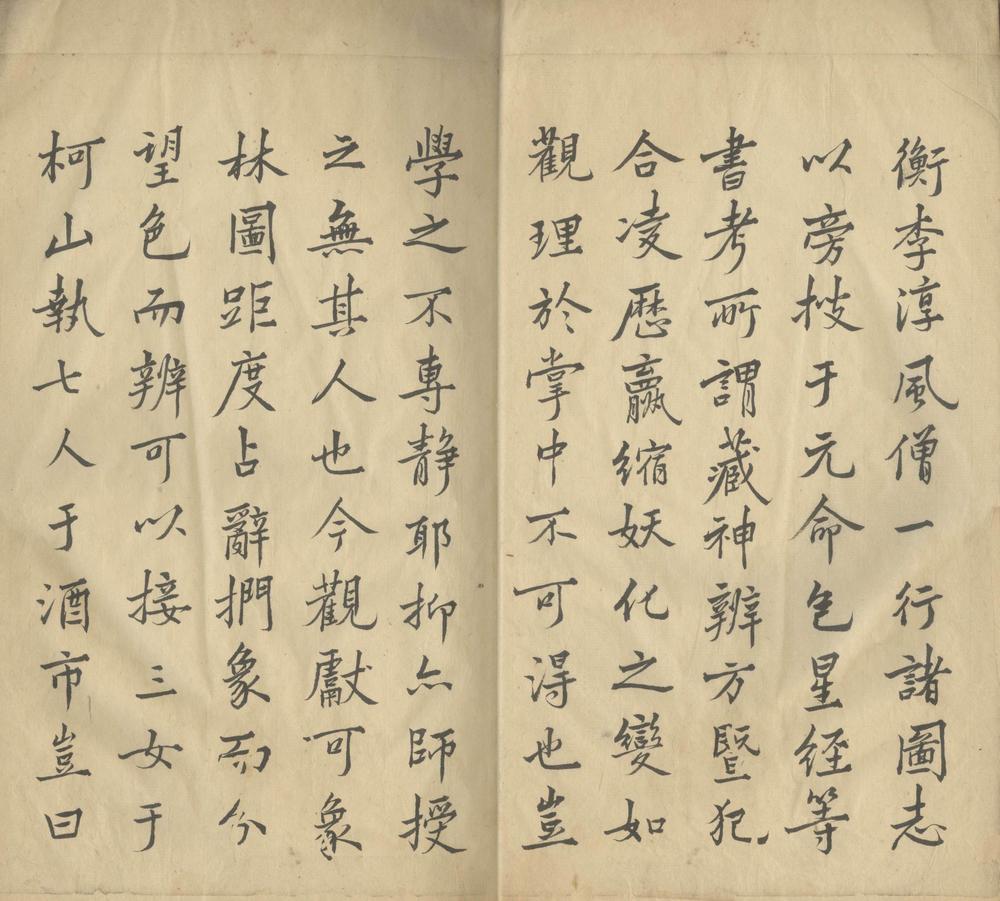 衡李淳風僧一行諸圖志
以旁搜于元命包星經等
書考所謂藏神辨方暨犯
合凌歷贏縮妖化之變如
觀理於掌中不可得也豈
學之不專靜耶抑亦師授
之無其人也今觀獻可象
林圖距度占辭捫象而分
望色而辨可以接三女于
柯山執七人于酒市豈曰